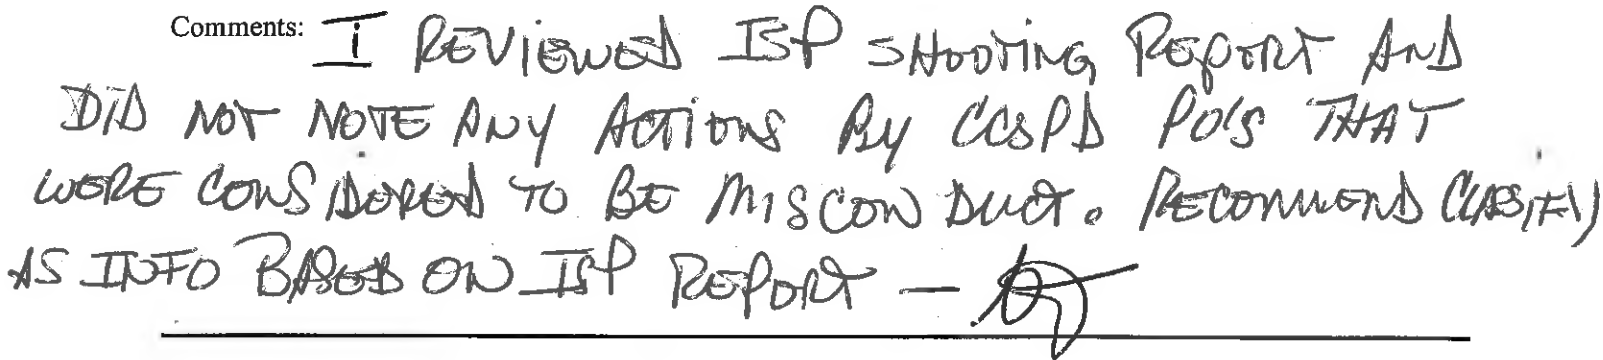 Comments: I REVIEWED ISP SHOOTING REPORT AND
DID NOT NOTE ANY ACTIONS BY CCSPD PO'S THAT
WERE CONSIDERED TO BE MISCONDUCT. RECOMMEND CLASSIFY
AS INFO BASED ON ISP REPORT —